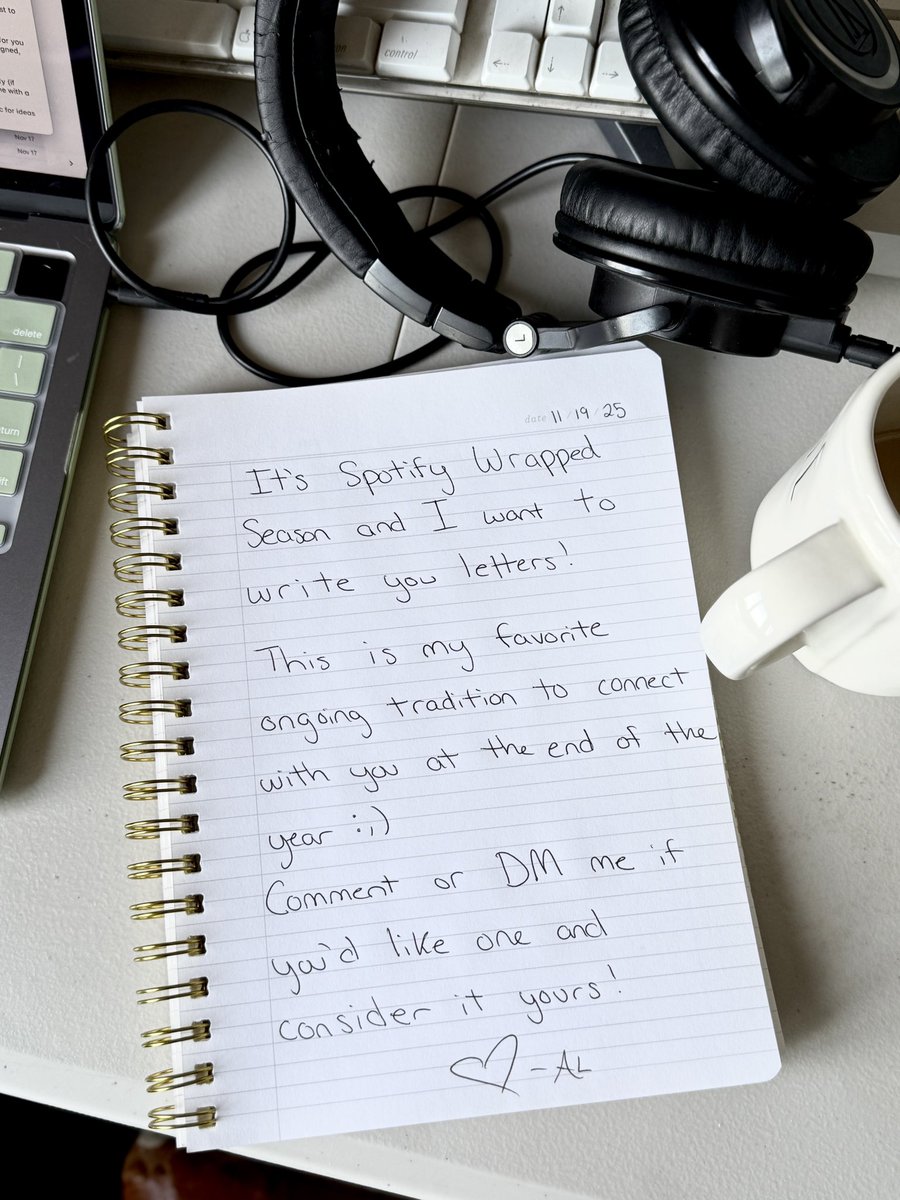 st to
or you
gned,
y (if
e with a
c for ideas
Nov 17
Nov 17
delete
|
\
turn
ift
on
control
↑
←
↓
→
L
date 11/19/25
It's Spotify Wrapped
Season and I want to
write you letters!
This is my favorite
ongoing tradition to connect
with you at the end of the
year :,)
Comment or DM me if
you'd like one and
consider it yours!
♡ - AL